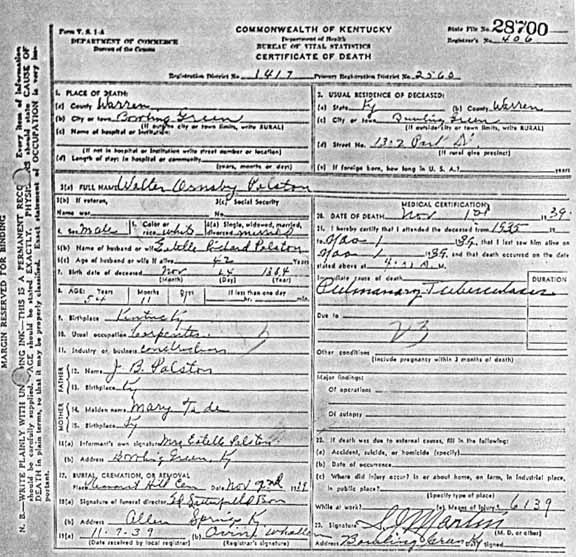 Form V. S. 1-A
DEPARTMENT OF COMMERCE
Bureau of the Census
COMMONWEALTH OF KENTUCKY
Department of Health
BUREAU OF VITAL STATISTICS
CERTIFICATE OF DEATH
State File No. 28700
Registrar's No. 406
Registration District No. 1417 Primary Registration District No. 2560
MARGIN RESERVED FOR BINDING
N. B.—WRITE PLAINLY WITH UNFADING INK—THIS IS A PERMANENT RECORD. Every item of information
should be carefully supplied. AGE should be stated EXACTLY. PHYSICIANS should state CAUSE OF
DEATH in plain terms, so that it may be properly classified. Exact statement of OCCUPATION is very important.
1. PLACE OF DEATH:
(a) County Warren
(b) City or town Bowling Green
(If outside city or town limits, write RURAL)
(c) Name of hospital or institution:
(If not in hospital or institution write street number or location)
(d) Length of stay: In hospital or community
(years, months or days)
2. USUAL RESIDENCE OF DECEASED:
(a) State Ky (b) County Warren
(c) City or town Bowling Green
(If outside city or town limits, write RURAL)
(d) Street No. 1302 Park St
(If rural give precinct)
(e) If foreign born, how long in U. S. A.? years
3(a) FULL NAME Walter Ormsby Polston
3(b) If veteran,
Name war
3(c) Social Security
No.
4. Sex Male 5. Color or race white 6(a) Single, widowed, married, divorced married
6(b) Name of husband or wife Estelle Richard Polston
6(c) Age of husband or wife if alive 42 Years
7. Birth date of deceased Nov
(Month) (Day) (Year)
8. AGE: Years 54 Months 11 Days If less than one day
hr. min.
9. Birthplace Kentucky
10. Usual occupation Carpenter
11. Industry or business construction
FATHER
12. Name J. B. Polston
13. Birthplace Ky
MOTHER
14. Maiden name Mary
15. Birthplace Ky
16(a) Informant's own signature Mrs Estelle Polston
(b) Address Bowling Green, Ky
17. BURIAL, CREMATION, OR REMOVAL
Place Pleasant Hill Cem Date Nov 2nd 1939
18(a) Signature of funeral director
(b) Address Allen Springs Ky
19(a) 11-7-39 (b)
(Date received by local registrar) (Registrar's signature)
MEDICAL CERTIFICATION
20. DATE OF DEATH Nov 1st, 1939.
21. I hereby certify that I attended the deceased from 1935
to Nov 1 1939, that I last saw him alive on
Nov 1 1939, and that death occurred on the date
stated above at M.
Immediate cause of death
DURATION
Pulmonary Tuberculosis
Due to
Other conditions
(Include pregnancy within 3 months of death)
Major findings:
Of operations
Of autopsy
22. If death was due to external causes, fill in the following:
(a) Accident, suicide, or homicide (specify)
(b) Date of occurrence
(c) Where did injury occur? In or about home, on farm, in industrial place,
in public place?
(Specify type of place)
While at work? (e) Means of injury 6139
23. Signature S J Martin
(M. D. or other)
Address Bowling Green Ky Date signed